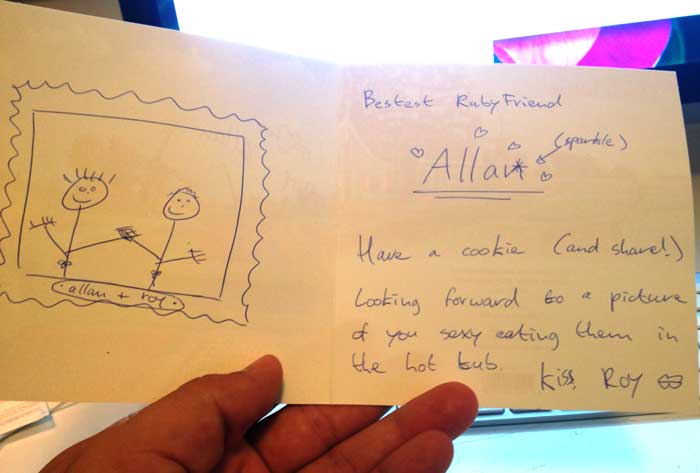 allan + roy
Bestest RubyFriend
Allan
(sparkle)
Have a cookie (and share!)
Looking forward to a picture
of you sexy eating them in
the hot tub.
Kiss, Roy